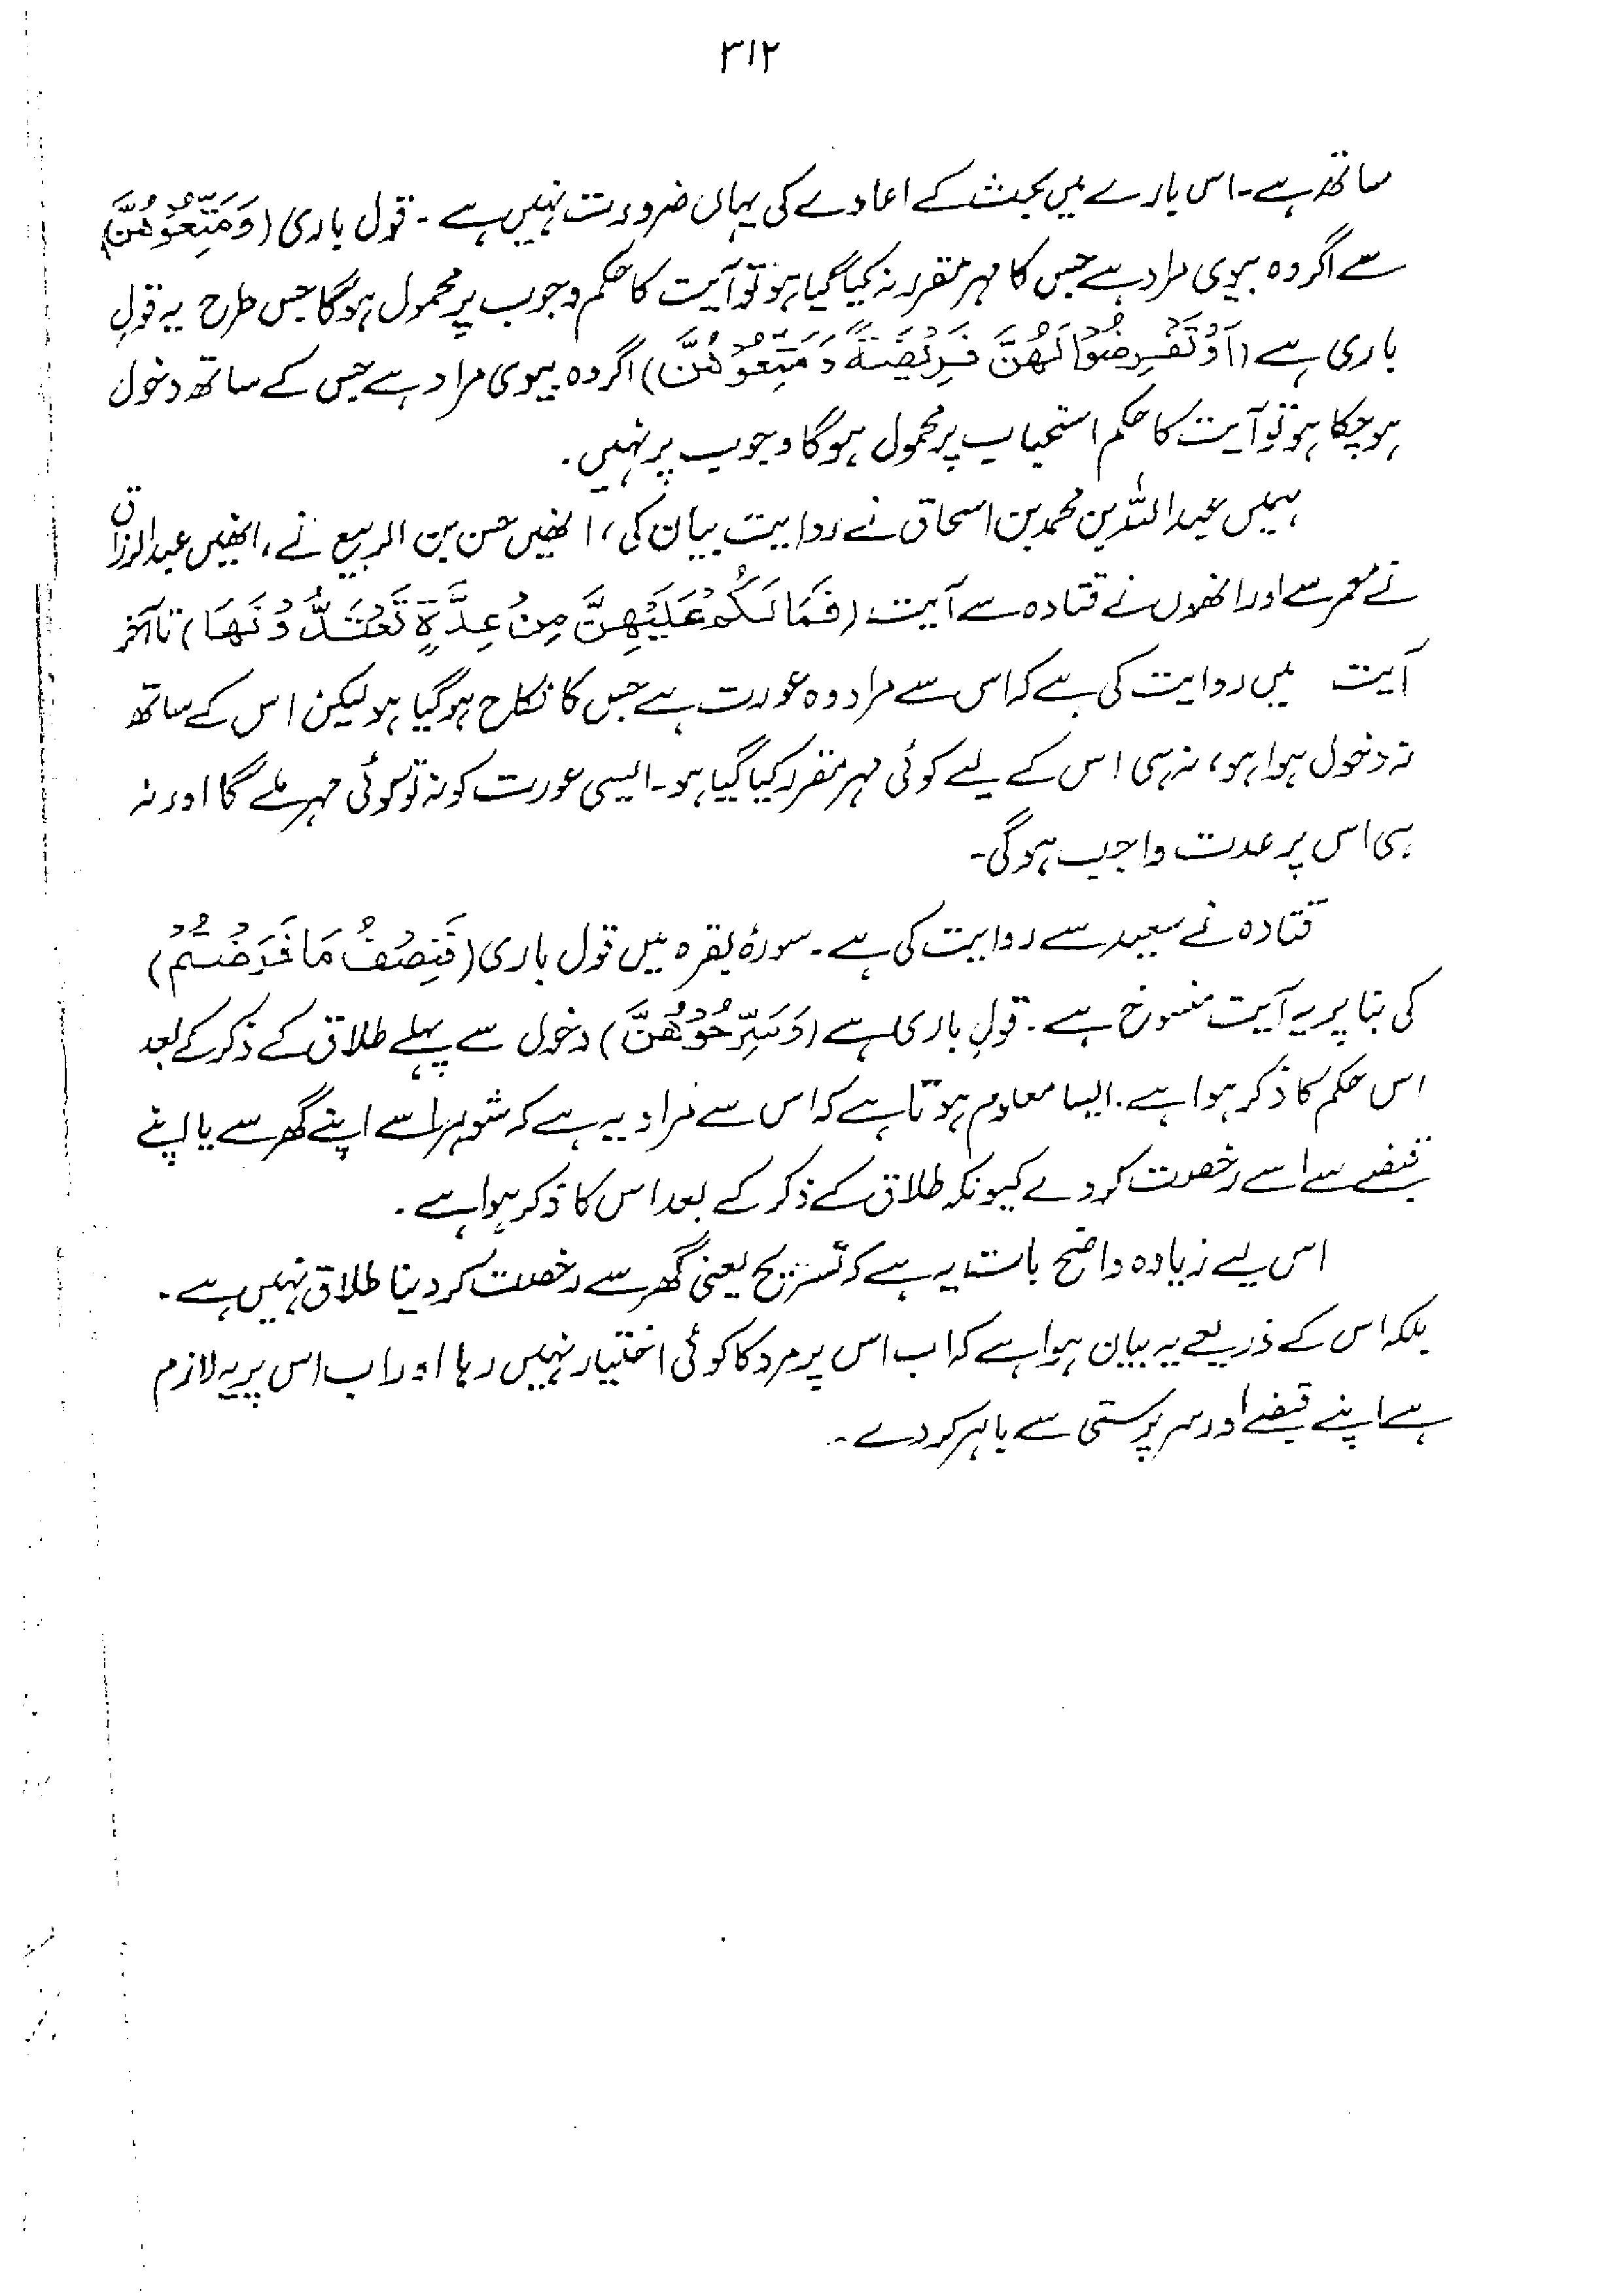 ۳۱۲
ساتھ ہے۔ اس بارے میں بحث کے اعادے کی یہاں ضرورت نہیں ہے۔ قول باری (وَمَتِّعُوْهُنَّ)
سے اگر وہ بیوی مراد ہے جس کا مہر مقرر نہ کیا گیا ہو تو آیت کا حکم وجوب پر محمول ہوگا جس طرح یہ قولِ
باری ہے (اَوْ تَفْرِضُوْا لَهُنَّ فَرِيْضَةً وَمَتِّعُوْهُنَّ) اگر وہ بیوی مراد ہے جس کے ساتھ دخول
ہوچکا ہو تو آیت کا حکم استحباب پر محمول ہوگا وجوب پر نہیں۔
ہمیں عبداللہ بن محمد بن اسحاق نے روایت بیان کی، انھیں حسن بن الربیع نے، انھیں عبدالرزاق
نے معمر سے اور انھوں نے قتادہ سے آیت (فَمَا لَكُمْ عَلَيْهِنَّ مِنْ عِدَّةٍ تَعْتَدُّوْنَهَا) تا آخر
آیت میں روایت کی ہے کہ اس سے مراد وہ عورت ہے جس کا نکاح ہوگیا ہو لیکن اس کے ساتھ
نہ دخول ہوا ہو، نہ ہی اس کے لیے کوئی مہر مقرر کیا گیا ہو۔ ایسی عورت کو نہ تو کوئی مہر ملے گا اور نہ
ہی اس پر عدت واجب ہوگی۔
قتادہ نے سعید سے روایت کی ہے۔ سورۂ بقرہ میں قول باری (فَنِصْفُ مَا فَرَضْتُمْ)
کی بنا پر یہ آیت منسوخ ہے۔ قولِ باری ہے (وَسَرِّحُوْهُنَّ) دخول سے پہلے طلاق کے ذکر کے بعد
اس حکم کا ذکر ہوا ہے۔ ایسا معلوم ہوتا ہے کہ اس سے مراد یہ ہے کہ شوہر اسے اپنے گھر سے یا اپنے
قبضے سے اسے رخصت کر دے کیونکہ طلاق کے ذکر کے بعد اس کا ذکر ہوا ہے۔
اس لیے زیادہ واضح بات یہ ہے کہ تسریح یعنی گھر سے رخصت کر دینا طلاق نہیں ہے۔
بلکہ اس کے ذریعے یہ بیان ہوا ہے کہ اب اس پر مرد کا کوئی اختیار نہیں رہا اور اب اس پر یہ لازم
ہے اپنے قبضے اور سرپرستی سے باہر کر دے۔